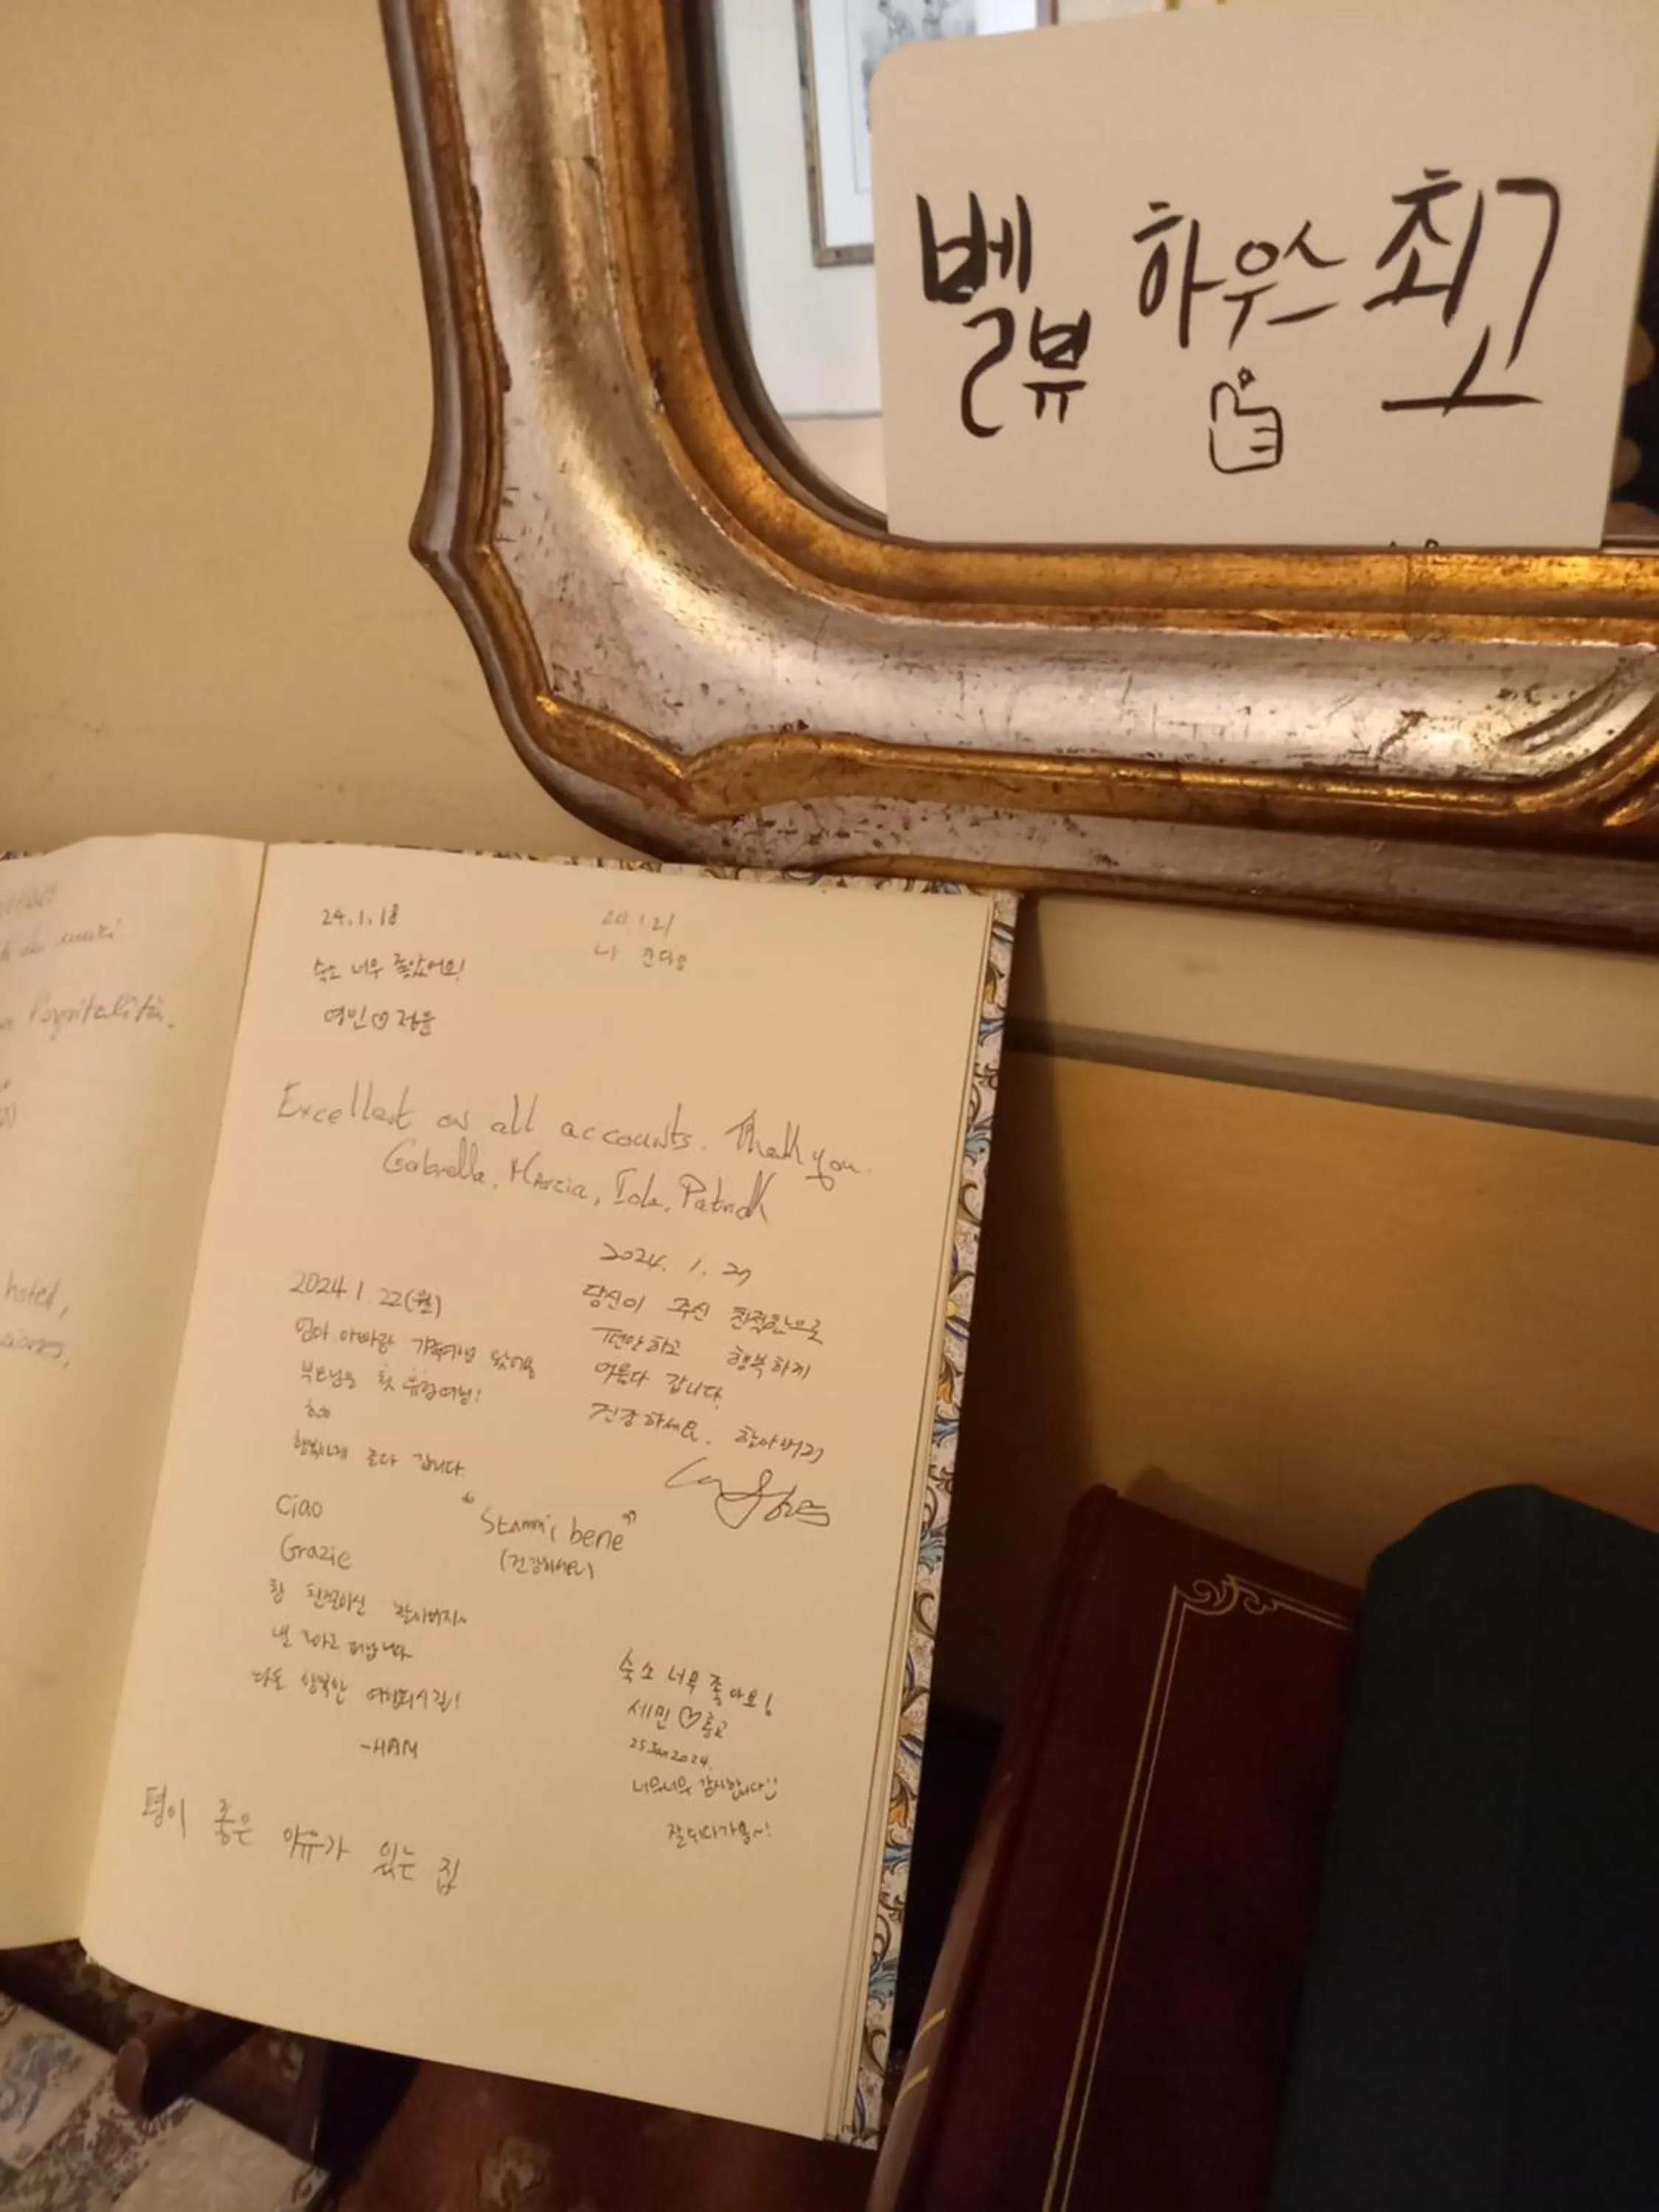 벨뷰 하우스 최고
hotel,
24.1.18
숙소 너무 좋았어요!
여민♡정윤
나 간다용
Excellent on all accounts. Thank you.
Gabrella, Marcia, Iola, Patrick
2024.1.22(월)
엄마 아빠랑 가족여행 왔어용
부모님은 첫 유럽여행!
행복하게 놀다 갑니다.
2024. 1. 27
당신이 주신 친절함으로
편안하고 행복하게
머물다 갑니다.
건강하세요. 할아버지
Ciao
Grazie
"Stammi bene"
(건강하세요)
참 친절하신 할아버지~
다들 행복한 여행되시길!
-HAM
숙소 너무 좋아요!
세민♡
25 Jan 2024.
너무너무 감사합니다:)
잘 쉬다가용~!
평이 좋은 이유가 있는 집